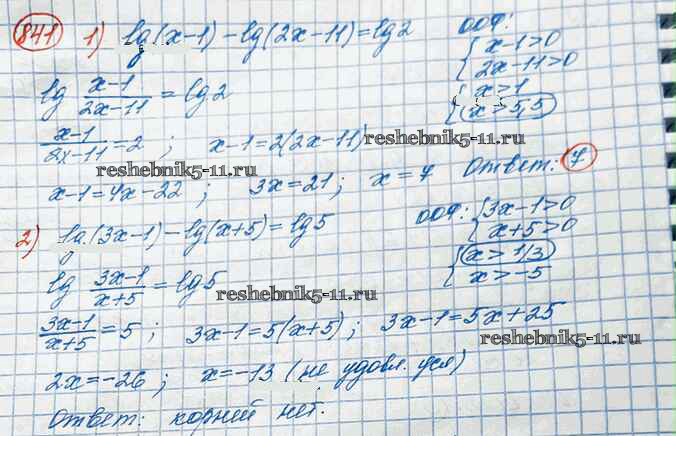 841 1) lg(x-1)-lg(2x-11)=lg2
ООФ:
{x-1>0
2x-11>0
{x>1
x>5,5
lg x-1/2x-11=lg2
x-1/2x-11=2; x-1=2(2x-11)
reshebnik5-11.ru
reshebnik5-11.ru
x-1=4x-22; 3x=21; x=7 Ответ: 7
2) lg(3x-1)-lg(x+5)=lg5
ООФ: {3x-1>0
x+5>0
{x>1/3
x>-5
lg 3x-1/x+5=lg5
reshebnik5-11.ru
3x-1/x+5=5; 3x-1=5(x+5); 3x-1=5x+25
reshebnik5-11.ru
2x=-26; x=-13 (не удовл. усл)
Ответ: корней нет.